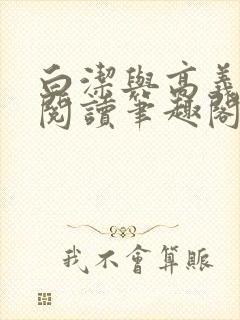 白潔與高義
閱讀筆趣閣
我不會算賬